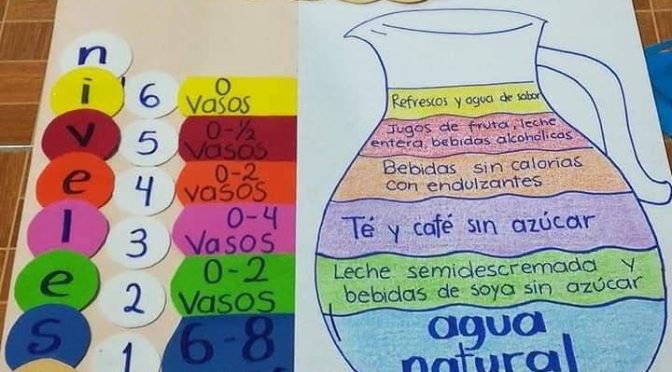 niveles
6
0
vasos
5
0-½
vasos
4
0-2
vasos
3
0-4
vasos
2
0-2
vasos
1
6-8
Refrescos y agua de sabor
Jugos de fruta, leche
entera, bebidas alcohólicas
Bebidas sin calorias
con endulzantes
Té y café sin azúcar
Leche semidescremada y
bebidas de soya sin azúcar
agua
natural